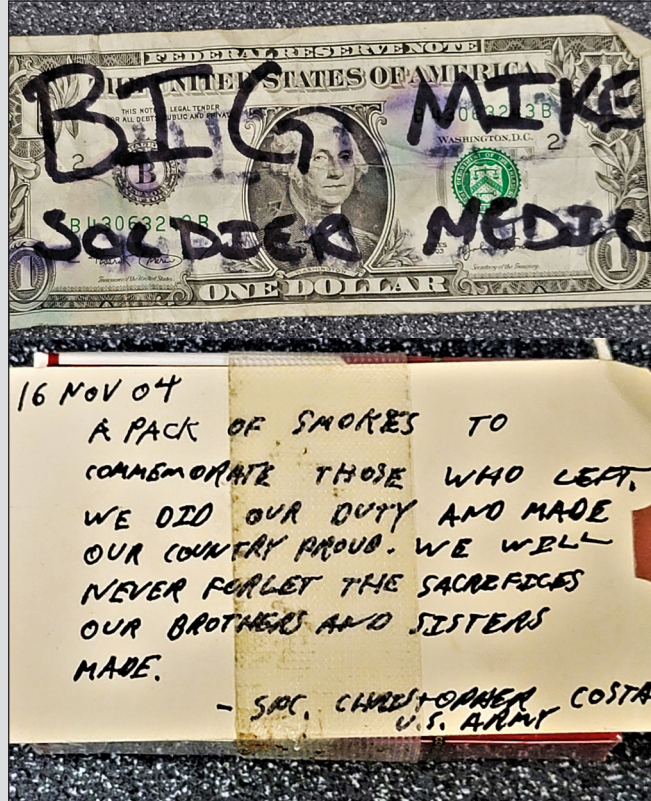 FEDERAL RESERVE NOTE
THE UNITED STATES OF AMERICA
BIG MIKE
THIS NOTE LEGAL TENDER
FOR ALL DEBTS PUBLIC AND PRIVATE
WASHINGTON, D.C.
2 2
B
SOLDIER MEDIC
Treasurer of the United States
Secretary of the Treasury
WASHINGTON
1 1
ONE DOLLAR
16 NOV 04
A PACK OF SMOKES TO
COMMEMORATE THOSE WHO LEFT.
WE DID OUR DUTY AND MADE
OUR COUNTRY PROUD. WE WILL
NEVER FORGET THE SACRIFICES
OUR BROTHERS AND SISTERS
MADE.
- SPC. CHRISTOPHER COSTA
U.S. ARMY